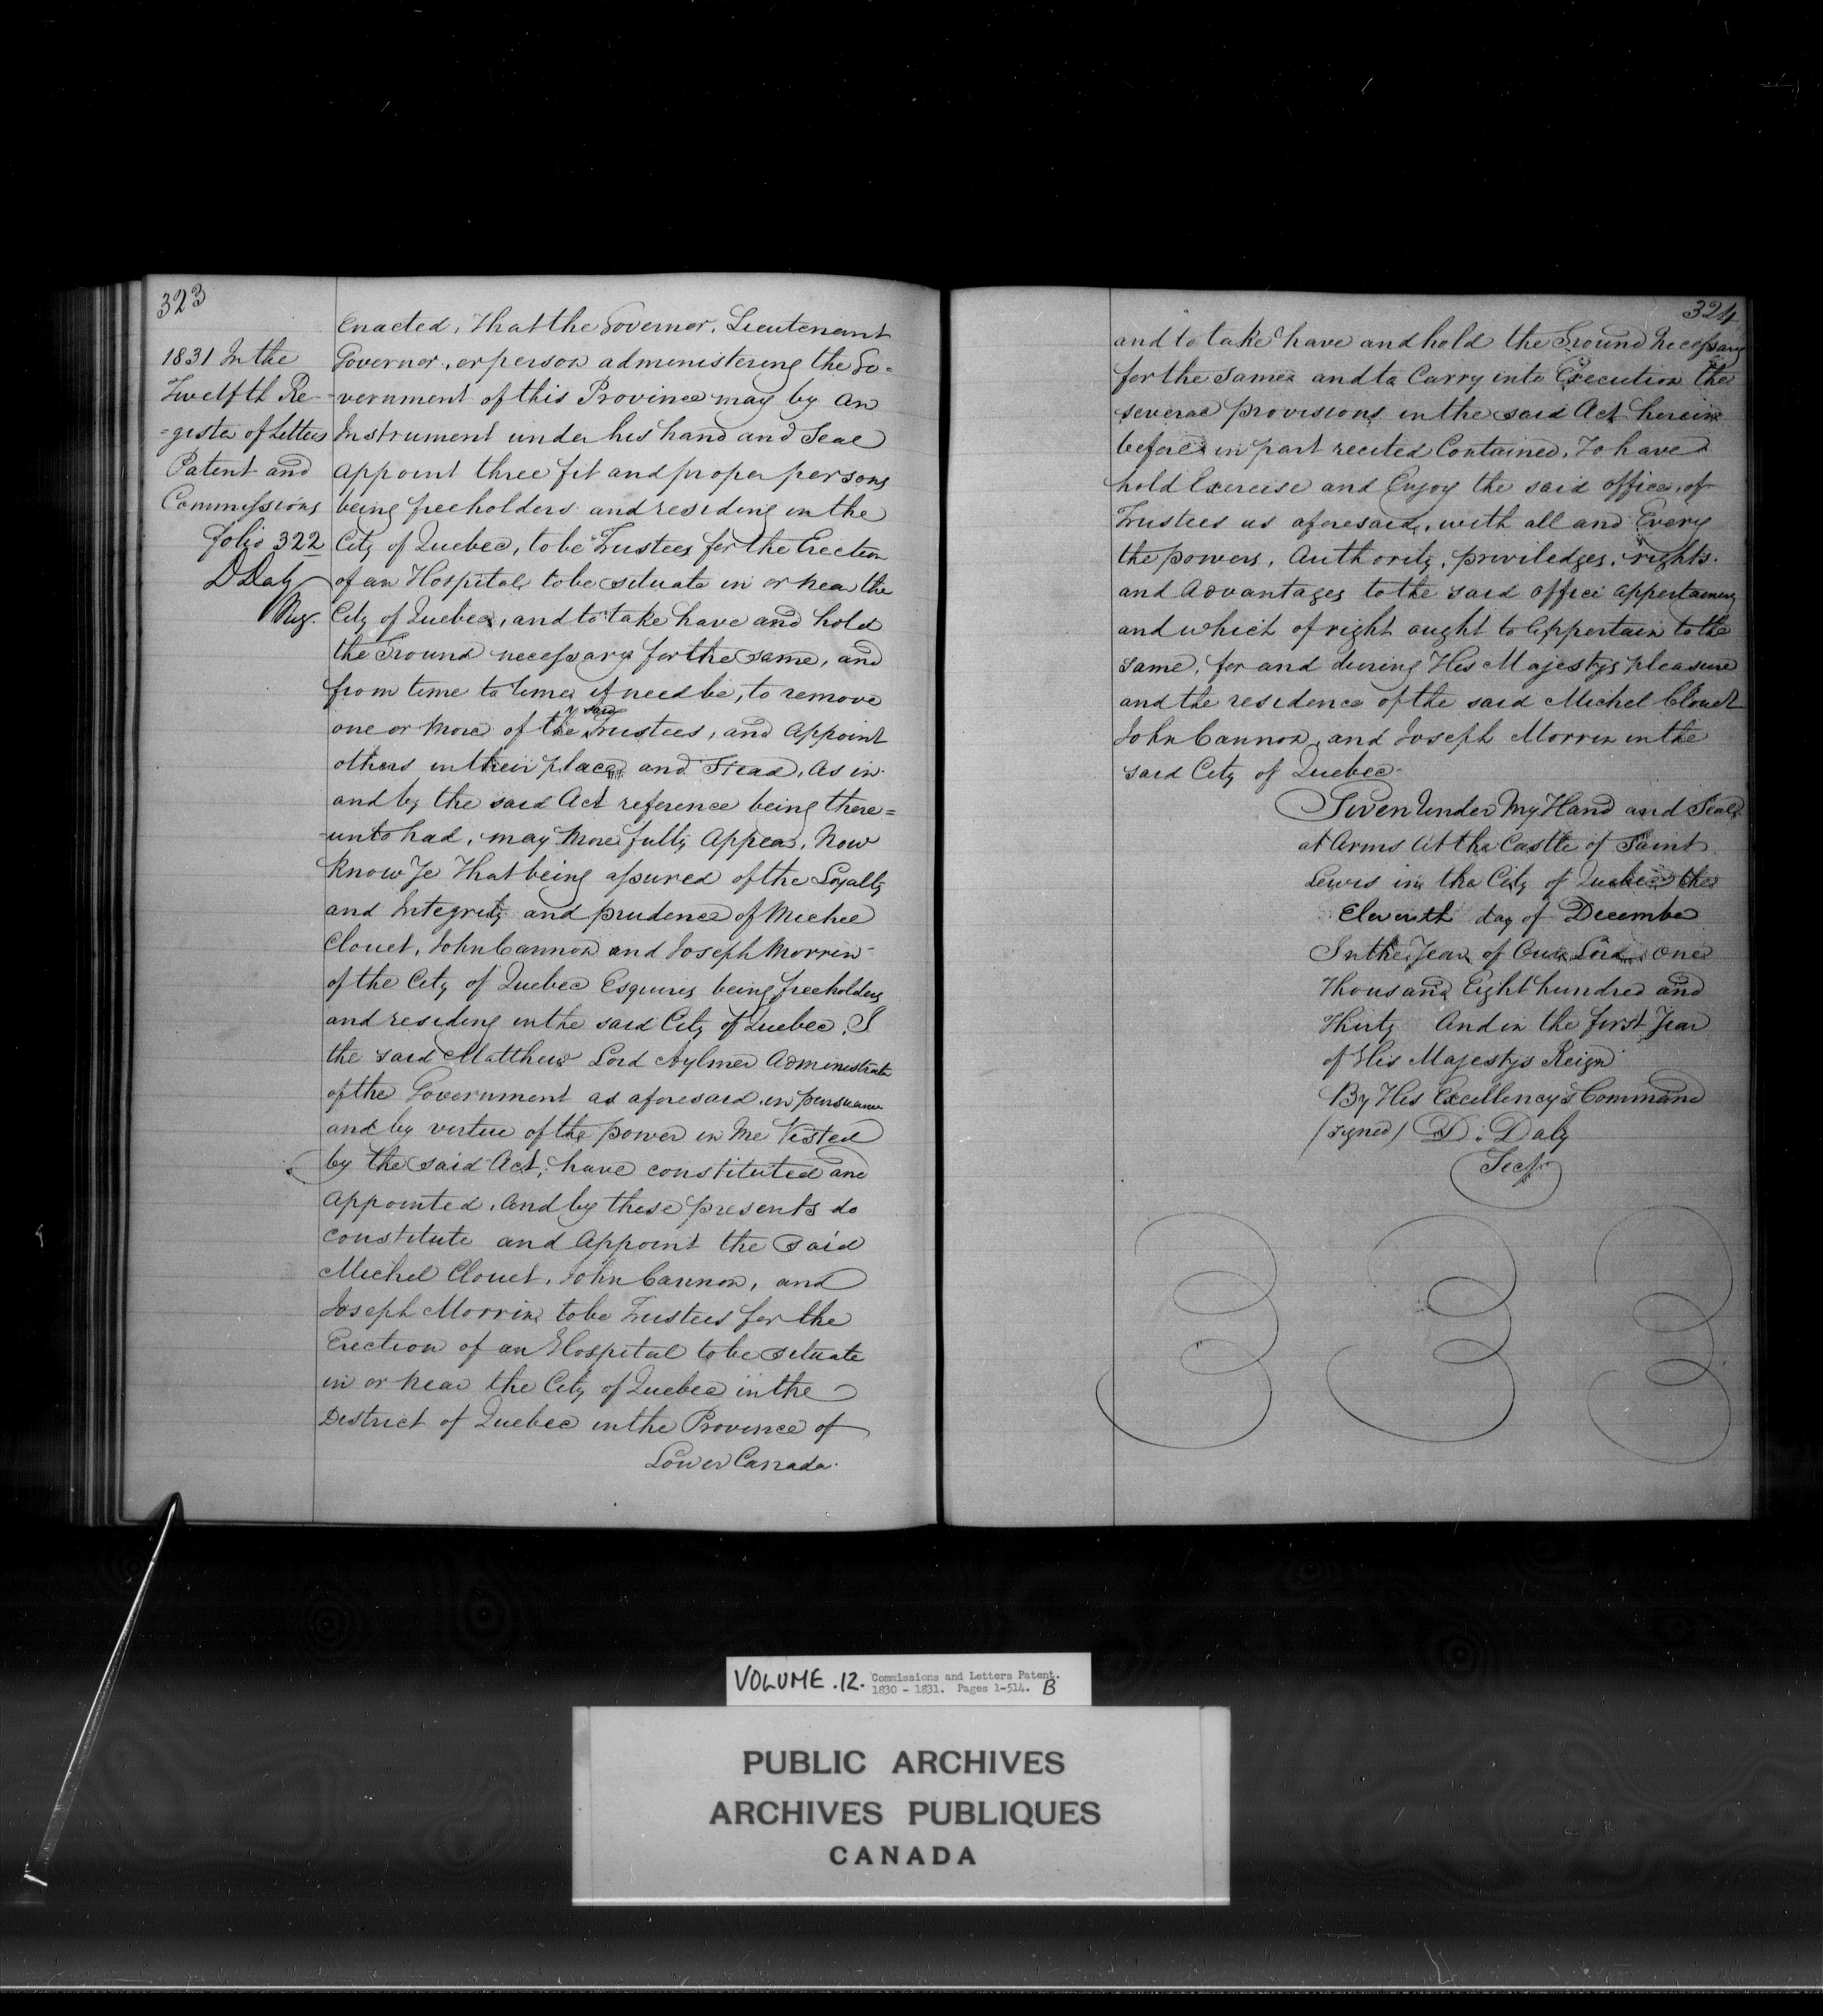 323
1831 In the
Twelfth Re-
-gister of Letters
Patent and
Commissions
folio 322
D Daly
Reg.
Enacted, That the Governor, Lieutenant
Governor, or person administering the Go=
-vernment of this Province may by an
Instrument under his hand and Seal
appoint three fit and proper persons
being freeholders and residing in the
City of Quebec, to be Trustees for the Erection
of an Hospital to be situate in or near the
City of Quebec, and to take have and hold
the Ground necessary for the same, and
from time to time, if need be, to remove
one or more of the said Trustees, and Appoint
others in their place and Stead, As in
and by the said Act reference being there=
-unto had, may more fully Appear, Now
Know Ye That being assured of the Loyalty
and Integrity and prudence of Michel
Clouet, John Cannon and Joseph Morrin
of the City of Quebec Esquires being freeholders
and residing in the said City of Quebec, I
the said Matthew Lord Aylmer Administrator
of the Government as aforesaid, in pursuance
and by virtue of the power in Me Vested
by the said Act, have constituted and
Appointed, And by these presents do
constitute and Appoint the said
Michel Clouet, John Cannon, and
Joseph Morrin, to be Trustees for the
Erection of an Hospital to be situate
in or near the City of Quebec in the
District of Quebec in the Province of
Lower Canada.
324
and to take have and hold the Ground Necessary
for the same and to Carry into Execution the
several provisions in the said Act herein
before in part recited Contained, To have
hold Exercise and Enjoy the said office, of
Trustees as aforesaid, with all and Every
the powers, Authority, priviledges, rights.
and Advantages to the said office appertaining
and which of right ought to Appertain to the
same, for and during His Majesty's pleasure
and the residence of the said Michel Clouet
John Cannon, and Joseph Morrin in the
said City of Quebec.
Given Under My Hand and Seal
at Arms At the Castle of Saint
Lewis in the City of Quebec the
Eleventh day of December
In the Year of Our Lord one
Thousand Eight hundred and
Thirty And in the first Year
of His Majesty's Reign
By His Excellency's Command
(signed) D: Daly
Secy.
VOLUME.12. Commissions and Letters Patent.
1830 - 1831. Pages 1-514. B
PUBLIC ARCHIVES
ARCHIVES PUBLIQUES
CANADA